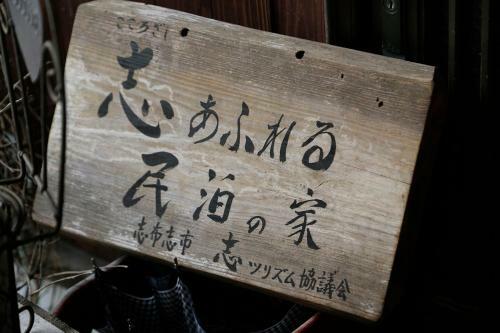 こころざし
志あふれる
民泊の家
志布志市
志ツーリズム協議会